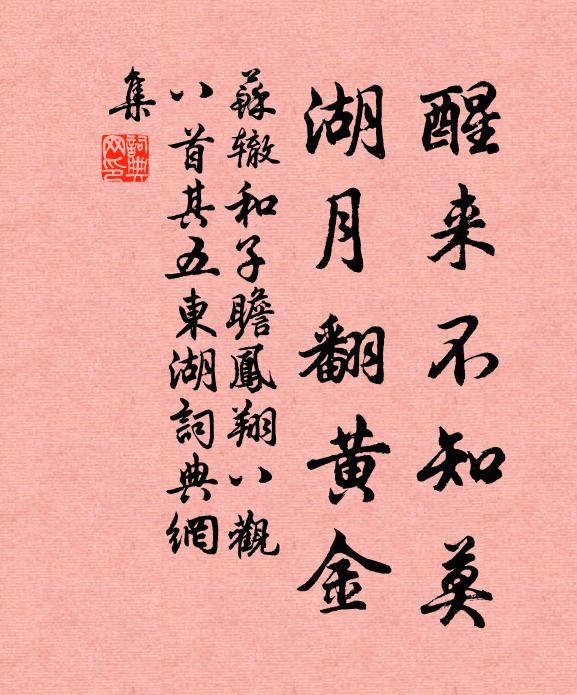 醒来不知莫
湖月翻黄金
蘇辙和子瞻鳳翔八觀
八首其五東湖詞典網
集
詞典網印